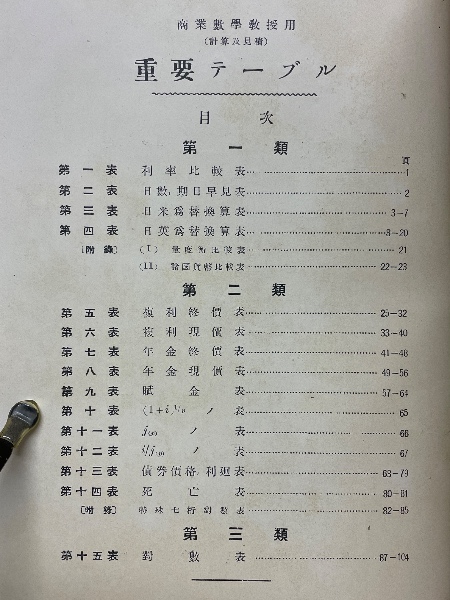 商業數學敎授用
(計算及見積)
重要テーブル
目次
第一類
頁
第一表 利率比較表 1
第二表 日數,期日早見表 2
第三表 日米爲替換算表 3-7
第四表 日英爲替換算表 8-20
〔附錄〕 (I) 度量衡比較表 21
(II) 諸國貨幣比較表 22-23
第二類
第五表 複利終價表 25-32
第六表 複利現價表 33-40
第七表 年金終價表 41-48
第八表 年金現價表 49-56
第九表 賦金表 57-64
第十表 (1+i)¹/ᵖ ノ表 65
第十一表 j₍ₚ₎ ノ表 66
第十二表 i/j₍ₚ₎ ノ表 67
第十三表 債券價格,利廻表 68-79
第十四表 死亡表 80-81
〔附錄〕 特殊七桁對數表 82-85
第三類
第十五表 對數表 87-104